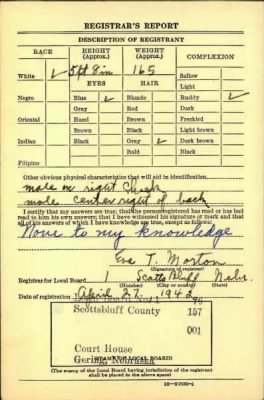 REGISTRAR'S REPORT
DESCRIPTION OF REGISTRANT
RACE HEIGHT (Approx.) WEIGHT (Approx.) COMPLEXION
5 ft 8 in 165
White ✓ EYES HAIR Sallow
Light
Negro Blue ✓ Blonde Ruddy ✓
Gray Red Dark
Oriental Hazel Brown Freckled
Brown Black Light brown
Indian Black Gray ✓ Dark brown
Bald Black
Filipino
Other obvious physical characteristics that will aid in identification
mole on right cheek
mole center right of back
I certify that my answers are true; that the person registered has read or has had
read to him his own answers; that I have witnessed his signature or mark and that
all of his answers of which I have knowledge are true, except as follows:
None to my knowledge
Eva T. Morton
(Signature of registrar)
Registrar for Local Board 1 Scotts Bluff Nebr.
Date of registration April 27 1942
Scottsbluff County 157
001
Court House
Gering, Nebraska
(STAMP OF LOCAL BOARD)
(The stamp of the Local Board having jurisdiction of the registrant
shall be placed in the above space)